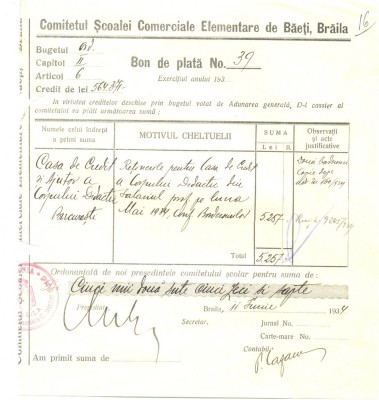 16
Comitetul Școalei Comerciale Elementare de Băeți, Brăila
Bugetul
Capitol II
Articol 6
Credit de lei
Bon de plată No. 39
Exercițiul anului 193
In virtutea creditelor deschise prin bugetul votat de Adunarea generală, D-l cassier al
comitetului va plăti următoarea sumă:
Numele celui îndrept
a primi suma
MOTIVUL CHELTUELII
SUMA
Lei B.
Observații și
acte
justificative
Casa de Credit
și Ajutor a
Corpului Didactic
București
Reținerile pentru Casa de Credit
a Corpului Didactic din
Salariul prof. pe luna
Mai 1934, Conf. Borderourilor
5.257
Total
5.257
Ordonanțată de noi președintele comitetului școlar pentru suma de:
Cinci mii două sute cinci zeci și șapte
Braila, 11 Iunie 1934
Secretar,
Jurnal No.
Carte-mare No.
Contabil,
Am primit suma de